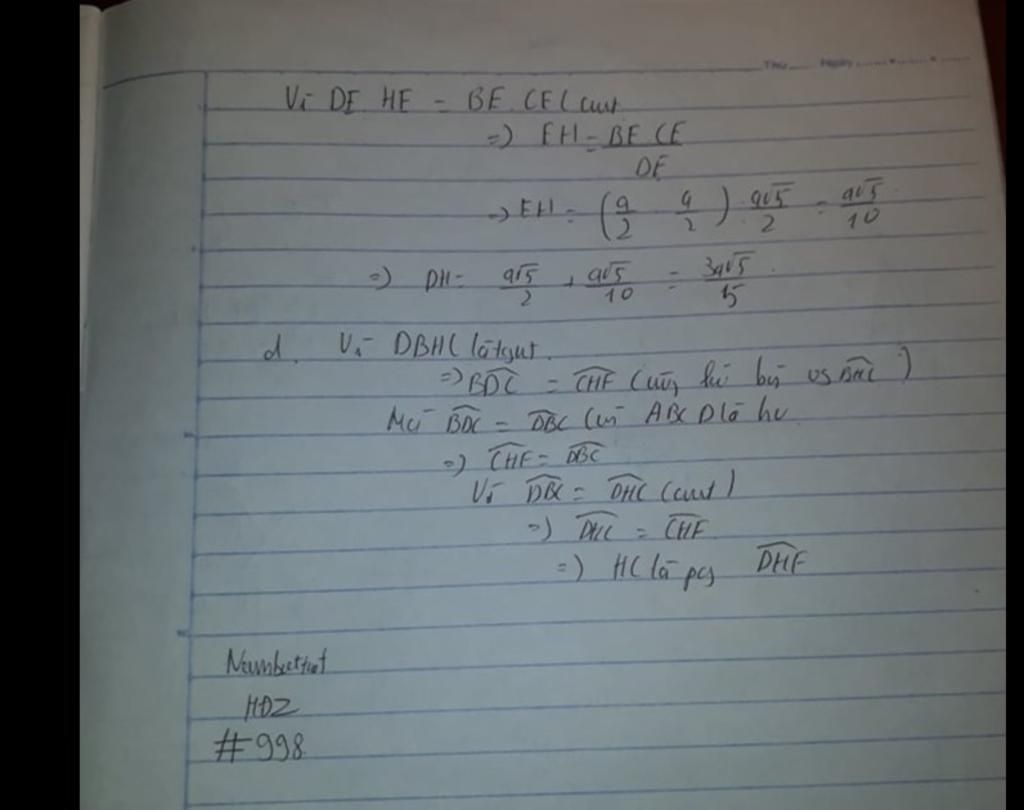 Thứ ...... Ngày ......
Vì DE HE = BE . CE ( cmt
=) EH = BE CE / DE
=) EH = (a/2 a/2) : a√5/2 = a√5/10
=) DH = a√5/2 + a√5/10 = 3a√5/5
d. Vì DBHC là tgnt.
=) BDC = CHF (cùng bù vs BHC )
Mà BDC = DBC (vì ABCD là hv
=) CHF = DBC
Vì DBC = DHC (cmt)
=) DHC = CHF
=) HC là pg DHF
HDZ
#998